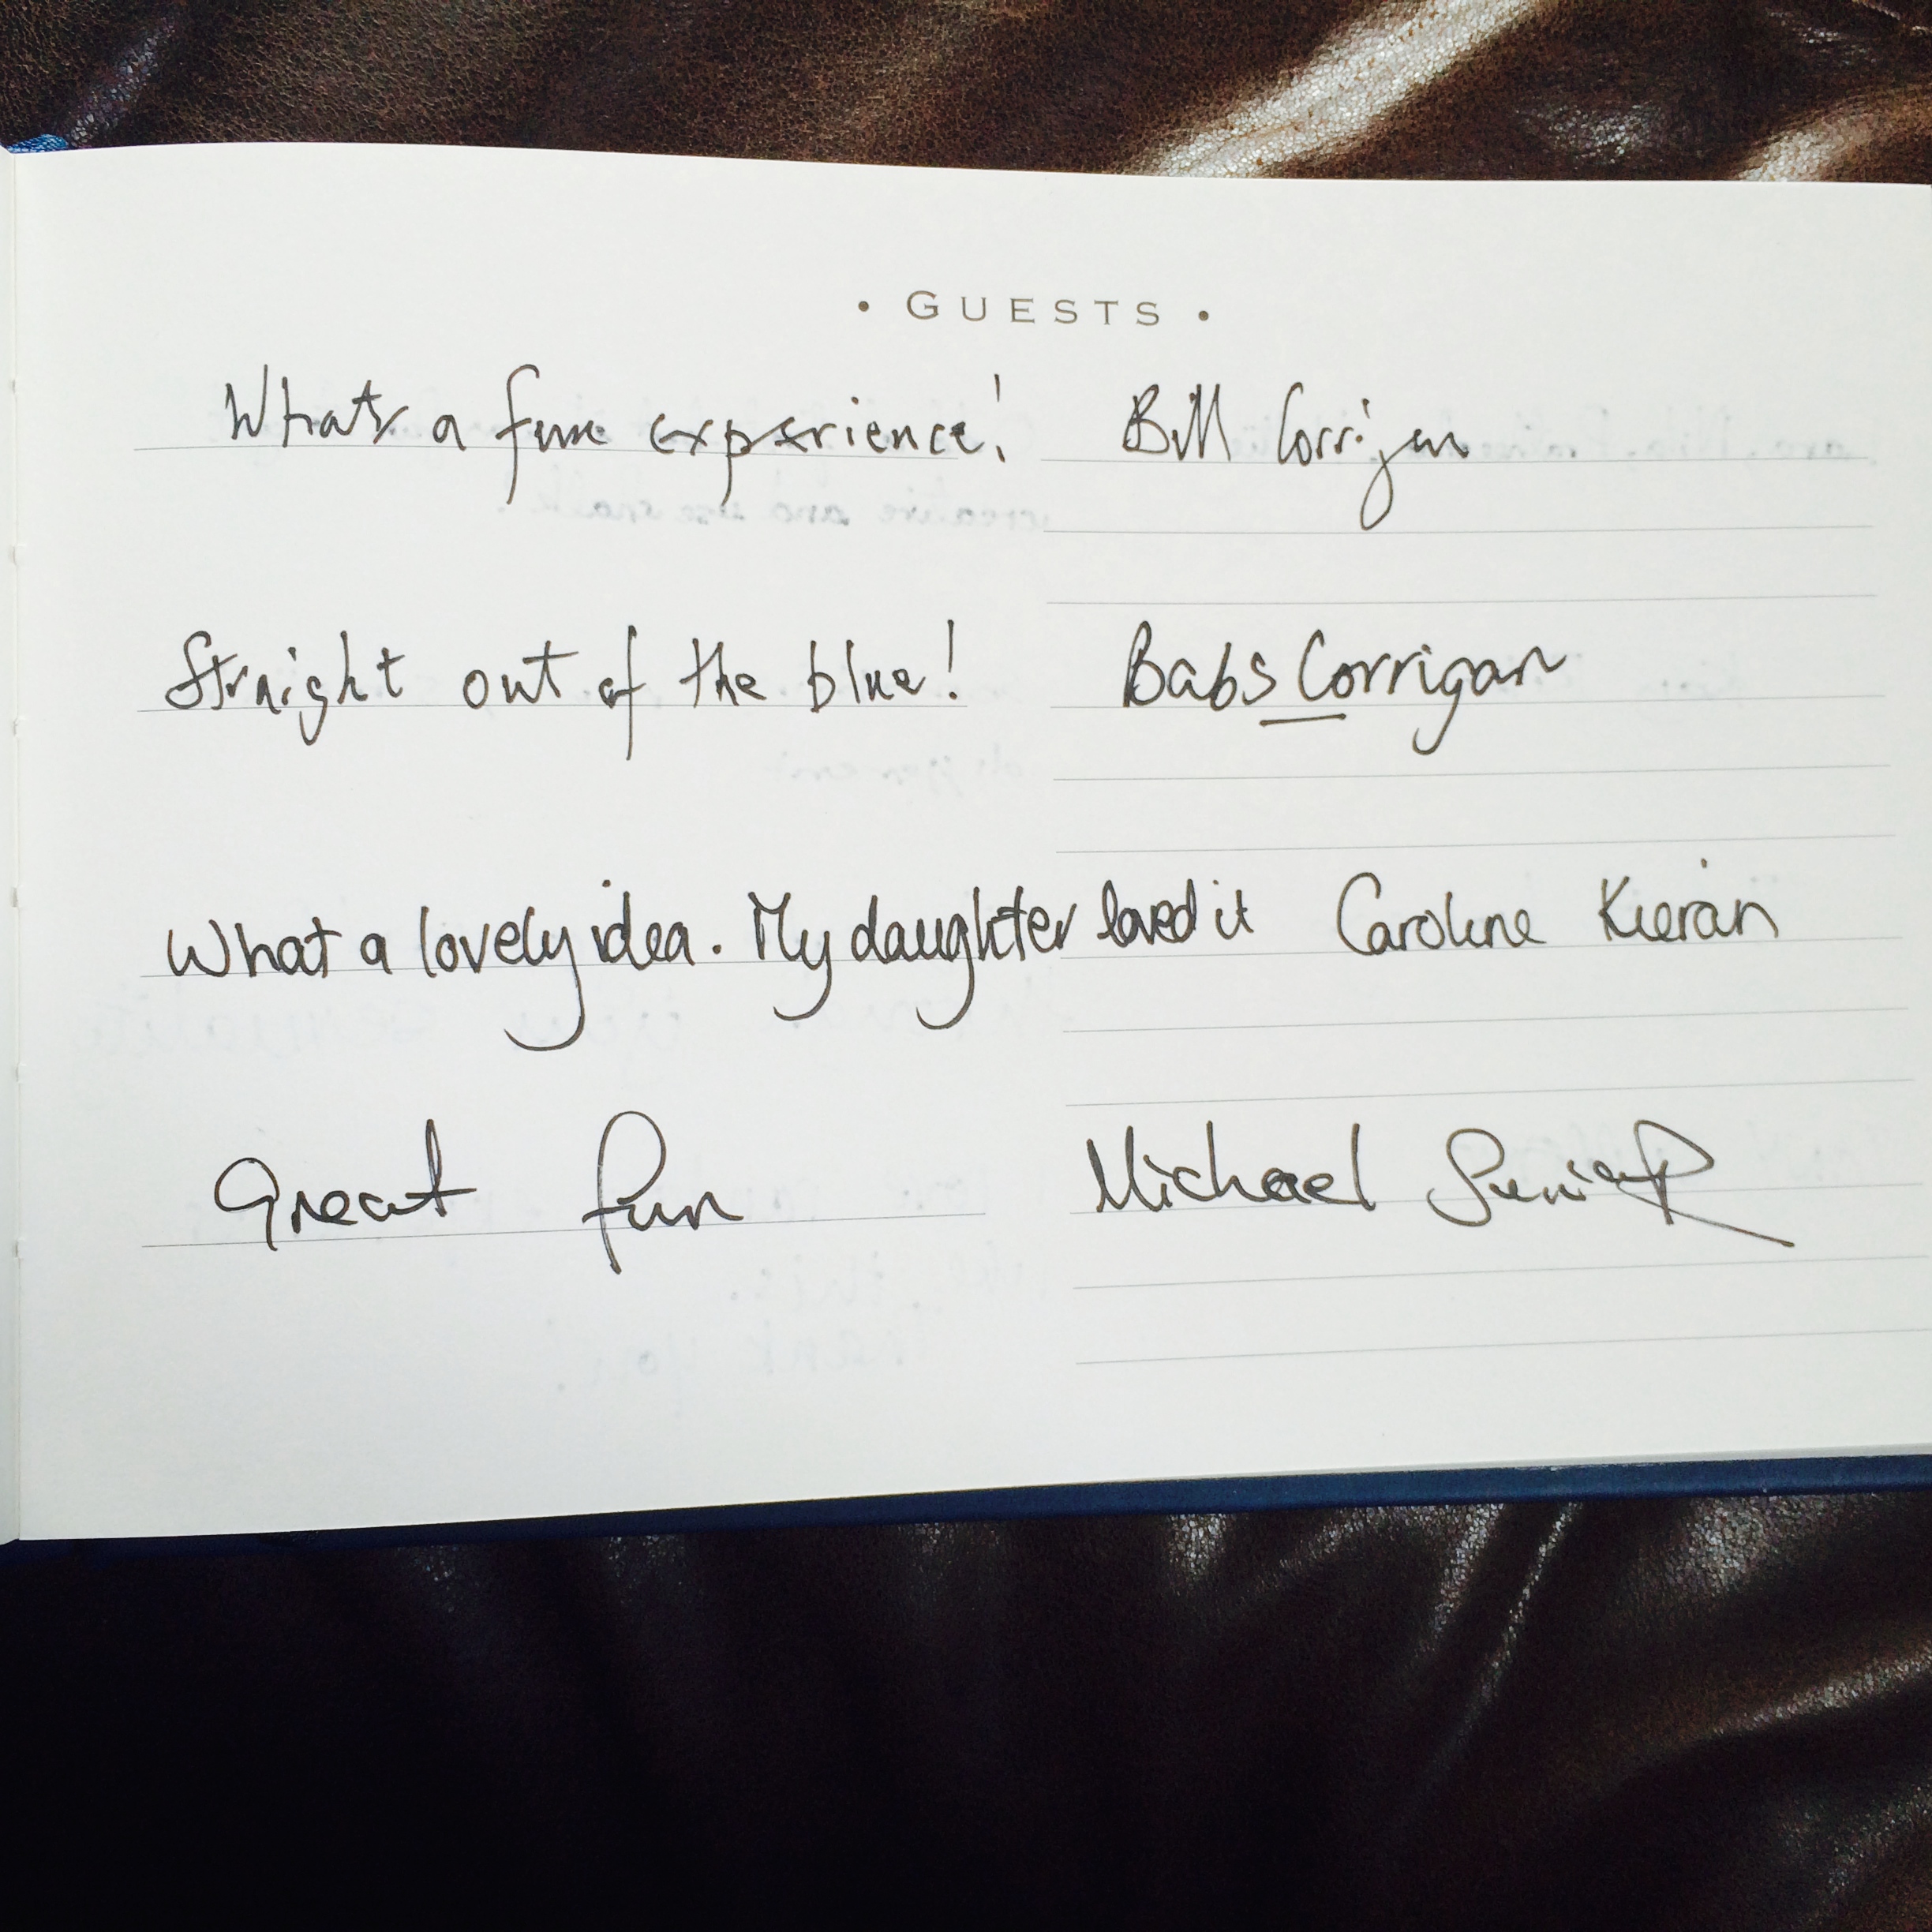 • GUESTS •
Whats a fun experience! Bill Corrigan
Straight out of the blue! Babs Corrigan
What a lovely idea. My daughter loved it Caroline Kieran
Great fun Michael